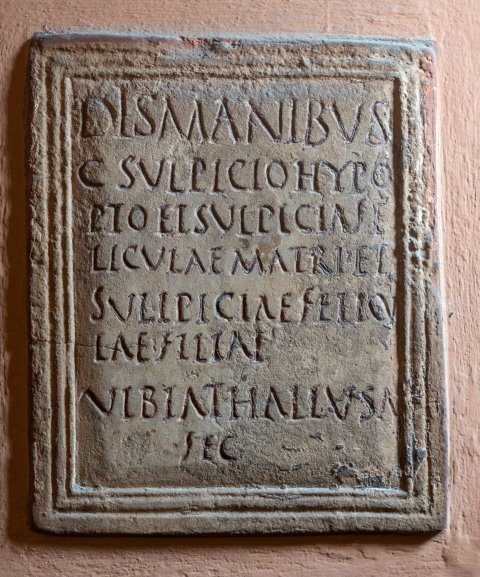 DIS MANIBVS
C SVLPICIO HYPO
PTO ET SVLPICIAE FE
LICVLAE MATRI ET
SVLLPICIAE FELICV
LAE FILIAE
VIBIA THALLVSA
FEC